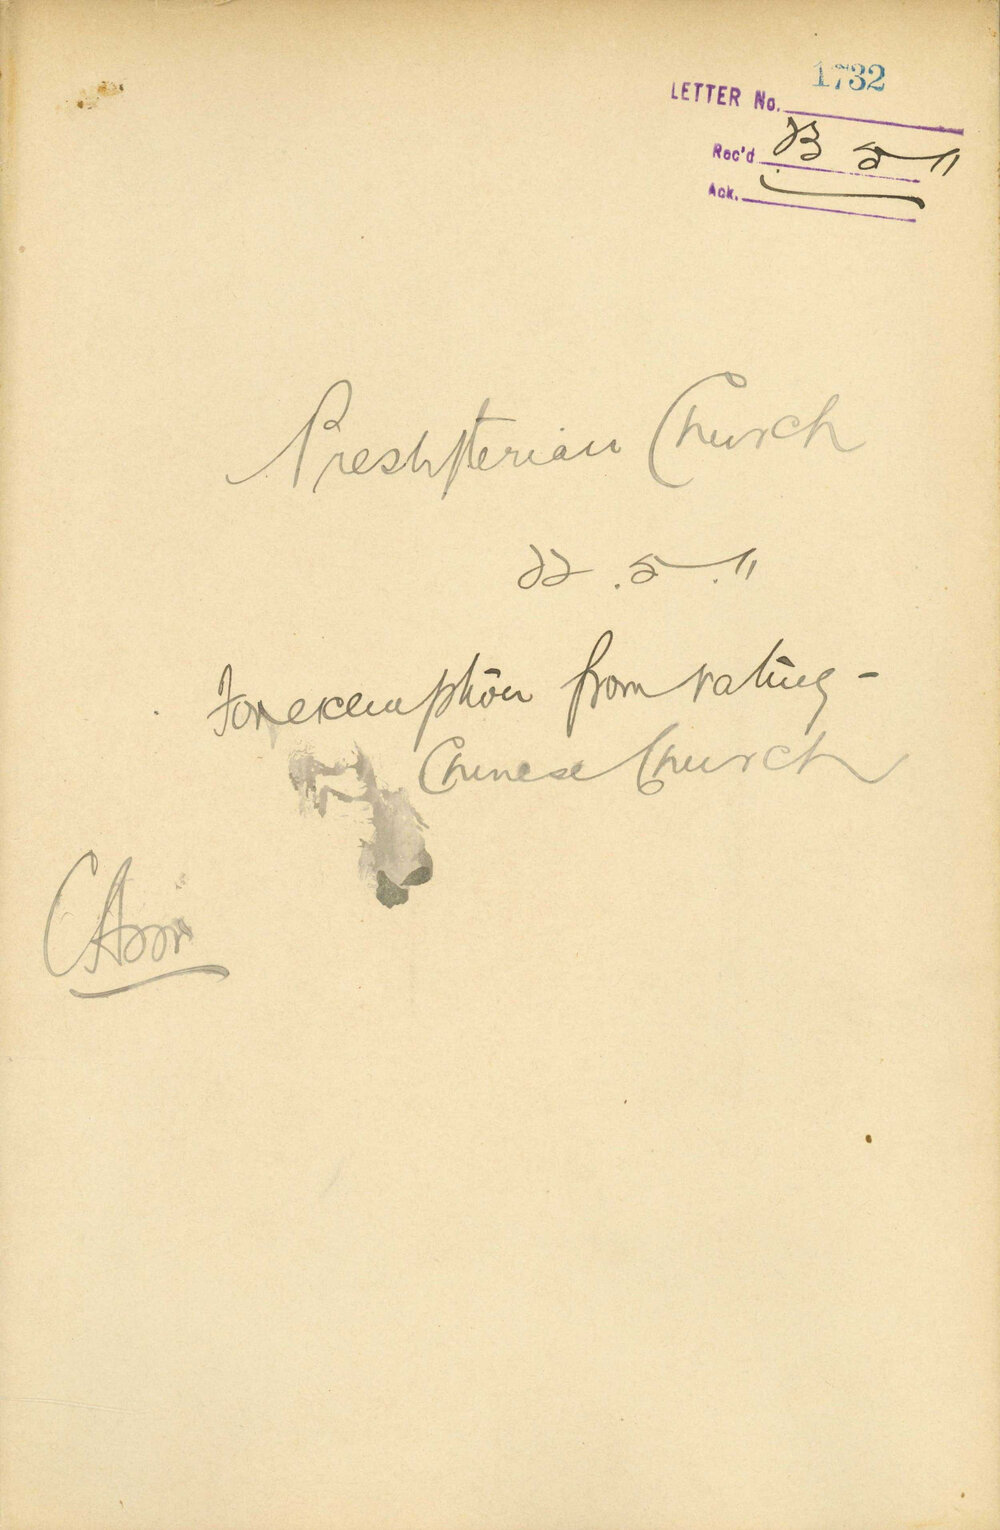 LETTER No. 1732
Rec'd 23 5 11
Ack.
Presbyterian Church
22.5.11
For exemption from rating -
Chinese Church